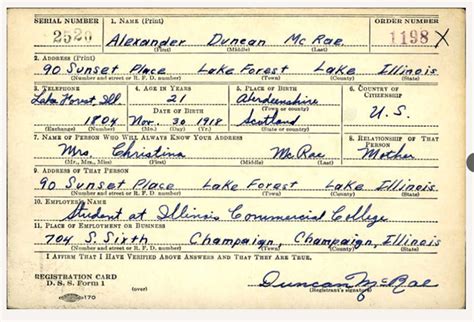 SERIAL NUMBER 1. NAME (Print) ORDER NUMBER
2520 Alexander Duncan McRae 1198 X
(First) (Middle) (Last)
2. ADDRESS (Print)
90 Sunset Place Lake Forest Lake Illinois
(Number and street or R. F. D. number) (Town) (County) (State)
3. TELEPHONE 4. AGE IN YEARS 5. PLACE OF BIRTH 6. COUNTRY OF CITIZENSHIP
Lake Forest, Ill. 21 Aberdeenshire
DATE OF BIRTH
1804 Nov. 30 1918 Scotland U.S.
(Exchange) (Number) (Mo.) (Day) (Yr.) (State or country)
7. NAME OF PERSON WHO WILL ALWAYS KNOW YOUR ADDRESS 8. RELATIONSHIP OF THAT PERSON
Mrs. Christina McRae Mother
(Mr., Mrs., Miss) (First) (Middle) (Last)
9. ADDRESS OF THAT PERSON
90 Sunset Place Lake Forest Lake Illinois
(Number and street or R. F. D. number) (Town) (County) (State)
10. EMPLOYER'S NAME
Student at Illinois Commercial College
11. PLACE OF EMPLOYMENT OR BUSINESS
704 S. Sixth Champaign, Champaign, Illinois
(Number and street or R. F. D. number) (Town) (County) (State)
I AFFIRM THAT I HAVE VERIFIED ABOVE ANSWERS AND THAT THEY ARE TRUE.
REGISTRATION CARD
D. S. S. Form 1 (over) Duncan McRae
170 (Registrant's signature)